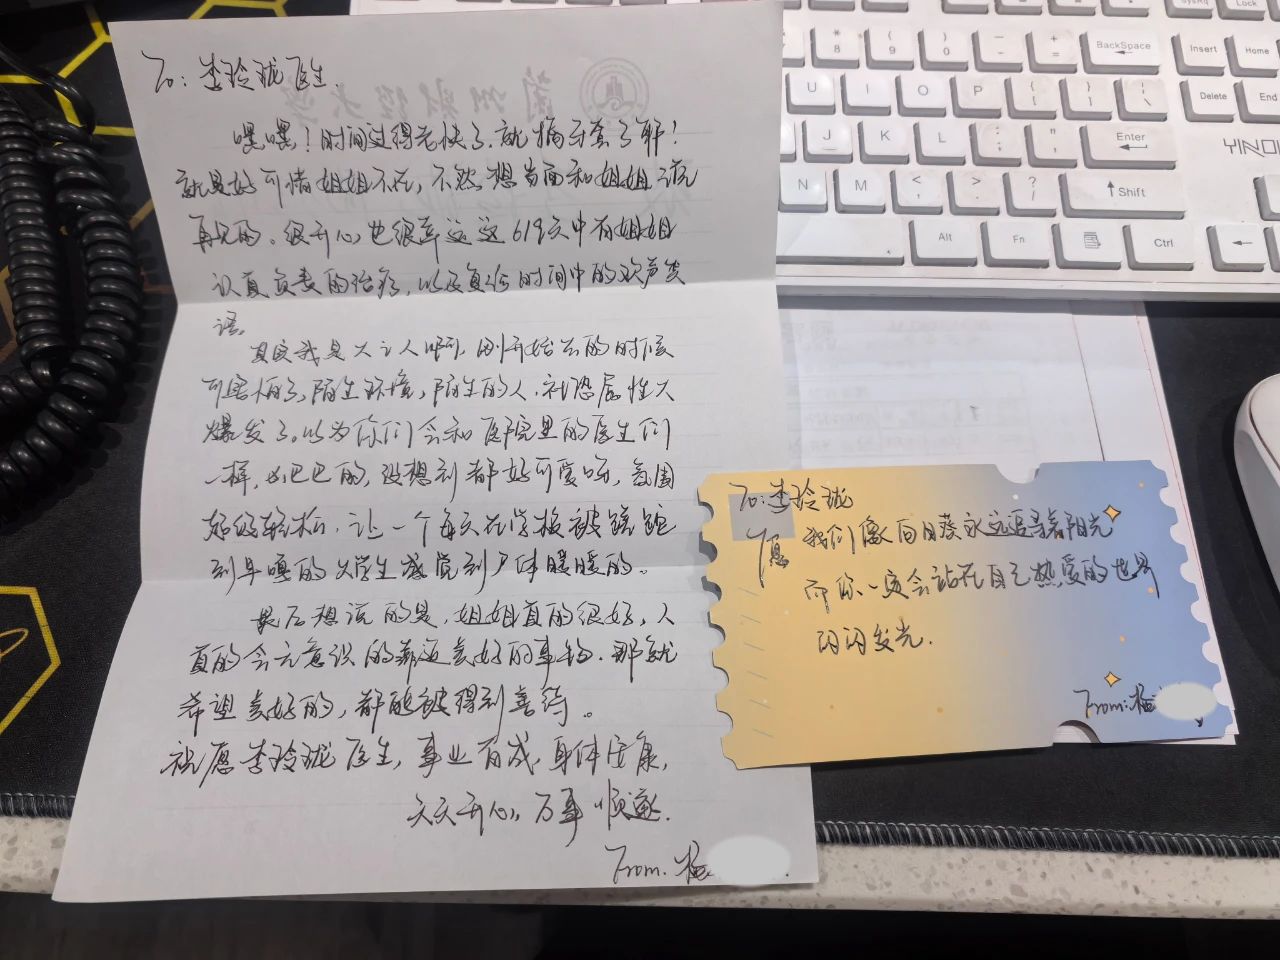 To: 李玲珑医生.
嘿嘿！时间过得老快了，就摘牙套了耶！
就是好可惜姐姐不在，不然想当面和姐姐说
再见的。很开心也很幸运这619天中有姐姐
认真负责的治疗，以及复诊时间中的欢声笑
语。
其实我是大主人啊，刚开始去的时候
可害怕了，陌生环境，陌生的人，社恐属性大
爆发了。以为你们会和医院里的医生们
一样，凶巴巴的，没想到都好可爱呀，氛围
好好轻松，让一个每天在学校被蹉跎
到早嘎的大学生感觉到尸体暖暖的。
最后想说的是，姐姐真的很好，人
真的会无意识的靠近美好的事物，那就
希望美好的，都能被得到善待。
祝愿李玲珑医生，事业有成，身体安康，
天天开心，万事顺遂.
From: 杨
To: 李玲珑
愿 我们像向日葵永远追寻着阳光
而你一定会站在自己热爱的世界
闪闪发光.
From: 杨
兰州财经大学
* 8
( 9
) 0
- -
+ =
BackSpace
Insert
Home
U I O P
{ [
} ]
| \
Delete
End
J K L
: ;
" '
Enter
YINDI
N M
< ,
> .
? /
Shift
Alt
Fn
Ctrl
SysRq
Lock